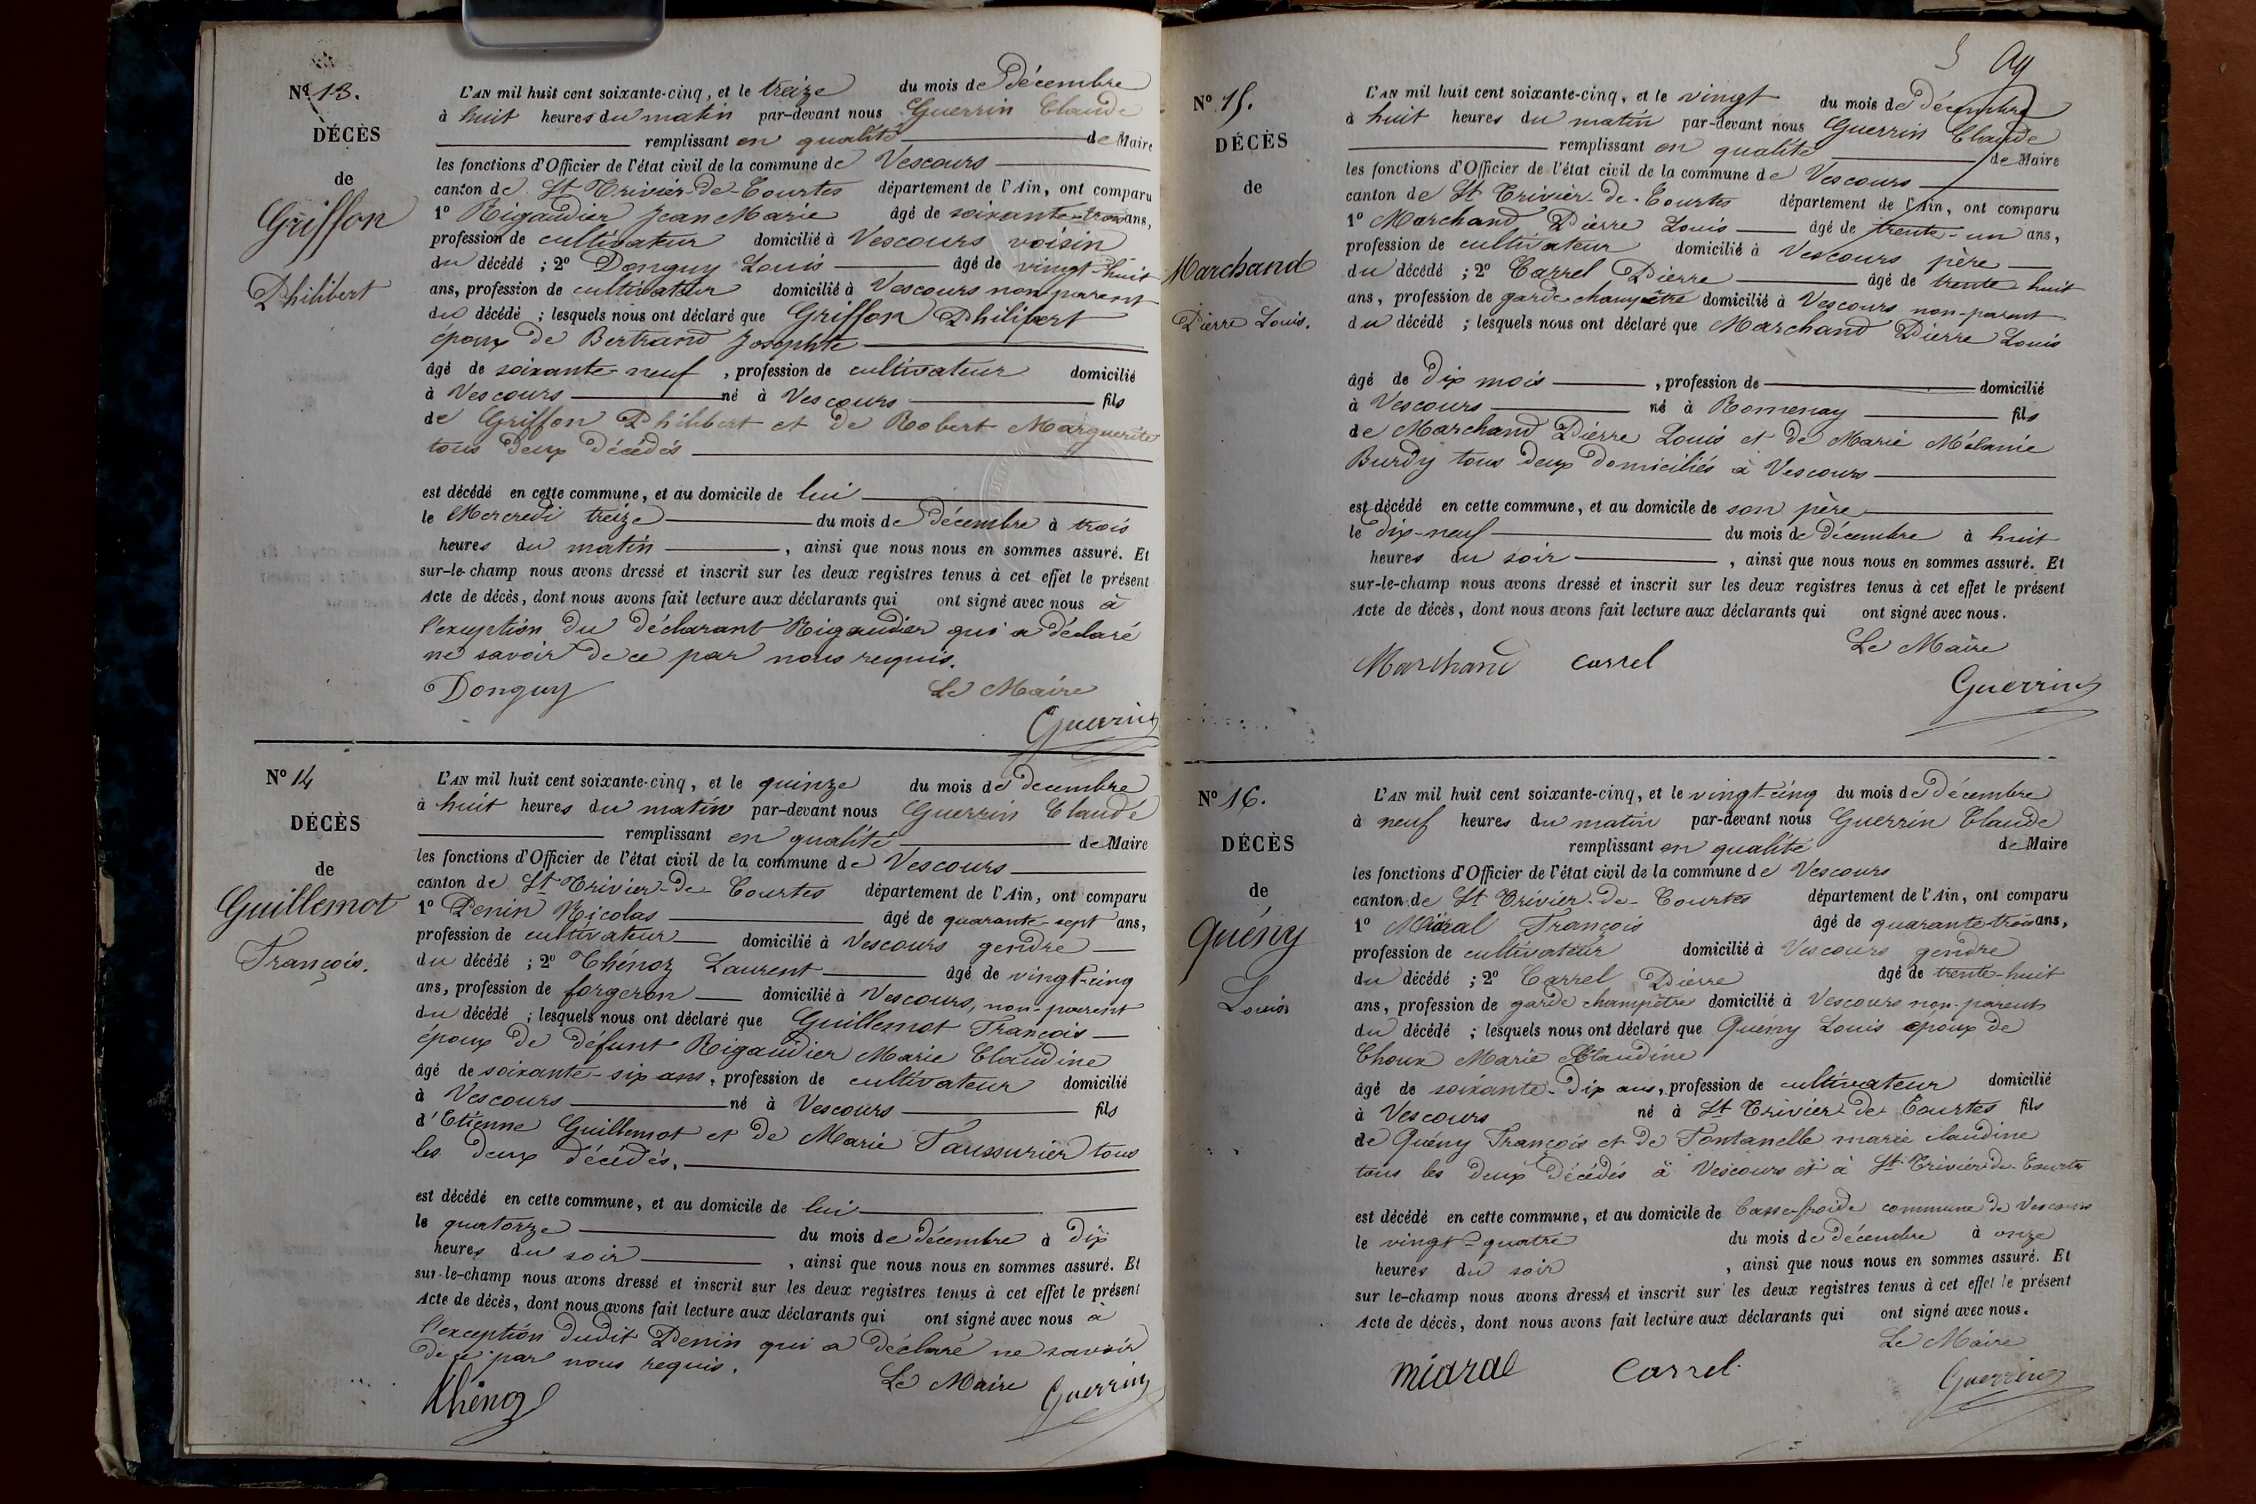 Nº 13.
DÉCÈS
de
Griffon
Philibert
L'AN mil huit cent soixante-cinq, et le treize du mois de Décembre
à huit heures du matin par-devant nous Guerrin Claude
remplissant en qualité de Maire
les fonctions d'Officier de l'état civil de la commune de Vescours
canton de St Trivier-de-Courtes département de l'Ain, ont comparu
1º Rigaudier Jean Marie âgé de soixante-trois ans,
profession de cultivateur domicilié à Vescours voisin
du décédé ; 2º Donguy Louis âgé de vingt-huit
ans, profession de cultivateur domicilié à Vescours non-parent
du décédé ; lesquels nous ont déclaré que Griffon Philibert
époux de Bertrand Josephte
âgé de soixante-neuf , profession de cultivateur domicilié
à Vescours né à Vescours fils
de Griffon Philibert et de Robert Marguerite
tous deux décédés
est décédé en cette commune, et au domicile de lui
le Mercredi treize du mois de Décembre à trois
heures du matin , ainsi que nous nous en sommes assuré. Et
sur-le-champ nous avons dressé et inscrit sur les deux registres tenus à cet effet le présent
Acte de décès, dont nous avons fait lecture aux déclarants qui ont signé avec nous à
l'exception du déclarant Rigaudier qui a déclaré
ne savoir de ce par nous requis.
Donguy Le Maire
Guerrin
Nº 14
DÉCÈS
de
Guillemot
François.
L'AN mil huit cent soixante-cinq, et le quinze du mois de Decembre
à huit heures du matin par-devant nous Guerrin Claude
remplissant en qualité de Maire
les fonctions d'Officier de l'état civil de la commune de Vescours
canton de St Trivier-de-Courtes département de l'Ain, ont comparu
1º Penin Nicolas âgé de quarante-sept ans,
profession de cultivateur domicilié à Vescours gendre
du décédé ; 2º Thénoz Laurent âgé de vingt-cinq
ans, profession de forgeron domicilié à Vescours, non-parent
du décédé ; lesquels nous ont déclaré que Guillemot François
époux de défunt Rigaudier Marie Claudine
âgé de soixante-six ans, profession de cultivateur domicilié
à Vescours né à Vescours fils
d'Etienne Guillemot et de Marie Taussurier tous
les deux décédés.
est décédé en cette commune, et au domicile de lui
le quatorze du mois de décembre à Dix
heures du soir , ainsi que nous nous en sommes assuré. Et
sur-le-champ nous avons dressé et inscrit sur les deux registres tenus à cet effet le présent
Acte de décès, dont nous avons fait lecture aux déclarants qui ont signé avec nous à
l'exception dudit Penin qui a déclaré ne savoir
de ce par nous requis.
Thénoz Le Maire Guerrin
Nº 15.
DÉCÈS
de
Marchand
Pierre Louis.
L'AN mil huit cent soixante-cinq, et le vingt du mois de Décembre
à huit heures du matin par-devant nous Guerrin Claude
remplissant en qualité de Maire
les fonctions d'Officier de l'état civil de la commune de Vescours
canton de St Trivier-de-Courtes département de l'Ain, ont comparu
1º Marchand Pierre Louis âgé de trente-un ans,
profession de cultivateur domicilié à Vescours père
du décédé ; 2º Carrel Pierre âgé de trente huit
ans, profession de garde champêtre domicilié à Vescours non-parent
du décédé ; lesquels nous ont déclaré que Marchand Pierre Louis
âgé de Dix mois , profession de domicilié
à Vescours né à Romenay fils
de Marchand Pierre Louis et de Marie Mélanie
Burdy tous deux domiciliés à Vescours
est décédé en cette commune, et au domicile de son père
le dix-neuf du mois de Décembre à huit
heures du soir , ainsi que nous nous en sommes assuré. Et
sur-le-champ nous avons dressé et inscrit sur les deux registres tenus à cet effet le présent
Acte de décès, dont nous avons fait lecture aux déclarants qui ont signé avec nous.
Le Maire
Marchand Carrel
Guerrin
Nº 16.
DÉCÈS
de
Quény
Louis
L'AN mil huit cent soixante-cinq, et le vingt-cinq du mois de Décembre
à neuf heures du matin par-devant nous Guerrin Claude
remplissant en qualité de Maire
les fonctions d'Officier de l'état civil de la commune de Vescours
canton de St Trivier-de-Courtes département de l'Ain, ont comparu
1º Miaral François âgé de quarante-trois ans,
profession de cultivateur domicilié à Vescours gendre
du décédé ; 2º Carrel Pierre âgé de trente-huit
ans, profession de garde champêtre domicilié à Vescours non-parent
du décédé ; lesquels nous ont déclaré que Quény Louis époux de
Choux Marie Claudine
âgé de soixante-Dix ans, profession de cultivateur domicilié
à Vescours né à St Trivier de Courtes fils
de Quény François et de Fontanelle marie claudine
tous les deux décédés à Vescours et à St Trivier de Courtes
est décédé en cette commune, et au domicile de Casse-froide commune de Vescours
le vingt-quatre du mois de décembre à onze
heures du soir , ainsi que nous nous en sommes assuré. Et
sur le-champ nous avons dressé et inscrit sur les deux registres tenus à cet effet le présent
Acte de décès, dont nous avons fait lecture aux déclarants qui ont signé avec nous.
Le Maire
miaral Carrel.
Guerrin